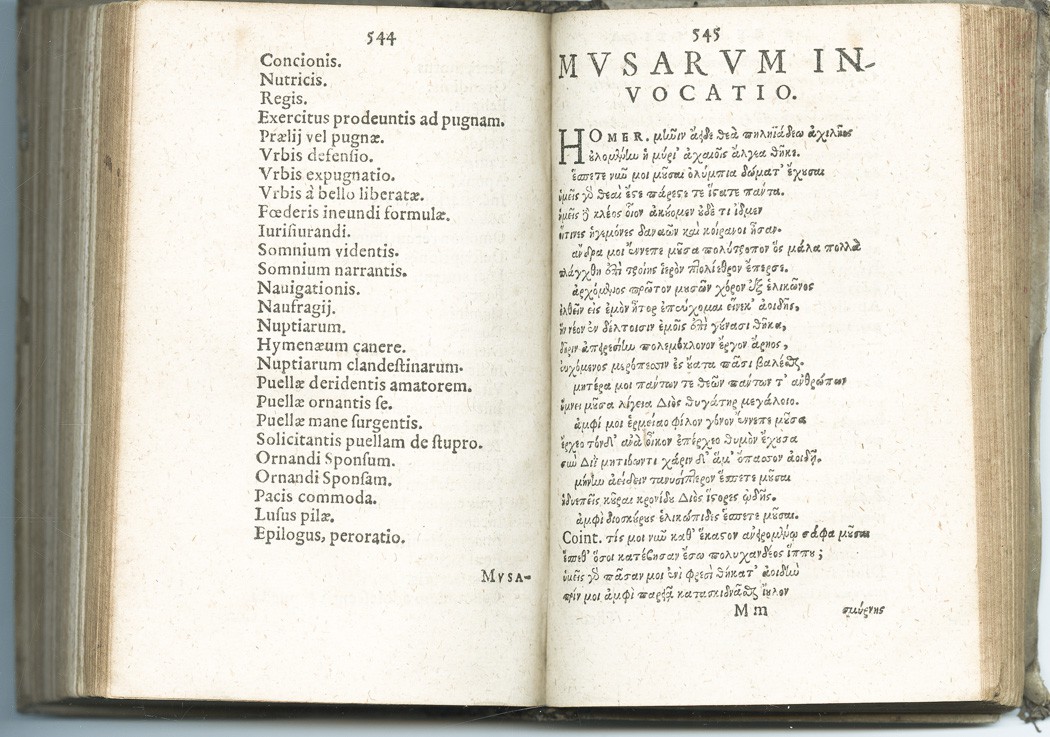 544
Concionis.
Nutricis.
Regis.
Exercitus prodeuntis ad pugnam.
Prælij vel pugnæ.
Vrbis defenſio.
Vrbis expugnatio.
Vrbis â bello liberatæ.
Fœderis ineundi formulæ.
Iuriſiurandi.
Somnium videntis.
Somnium narrantis.
Nauigationis.
Naufragij.
Nuptiarum.
Hymenæum canere.
Nuptiarum clandeſtinarum.
Puellæ deridentis amatorem.
Puellæ ornantis ſe.
Puellæ mane ſurgentis.
Solicitantis puellam de ſtupro.
Ornandi Sponſum.
Ornandi Sponſam.
Pacis commoda.
Luſus pilæ.
Epilogus, peroratio.
MVSA-
545
MVSARVM IN-
VOCATIO.
HOMER. μῆνιν ἄειδε θεὰ πηληϊάδεω ἀχιλῆος
οὐλομένην ἣ μύρι' ἀχαιοῖς ἄλγεα θῆκε.
ἕσπετε νῦν μοι μοῦσαι ὀλύμπια δώματ' ἔχουσαι
ὑμεῖς γὰρ θεαί ἐστε πάρεστε τε ἴστε πάντα.
ἡμεῖς δὲ κλέος οἶον ἀκούομεν οὐδέ τι ἴδμεν
οἵτινες ἡγεμόνες δαναῶν καὶ κοίρανοι ἦσαν.
ἄνδρα μοι ἔννεπε μοῦσα πολύτροπον ὃς μάλα πολλὰ
πλάγχθη ἐπεὶ τροίης ἱερὸν πτολίεθρον ἔπερσε.
ἀρχόμενος πρῶτον μουσῶν χόρον ἐξ ἑλικῶνος
ἐλθεῖν εἰς ἐμὸν ἦτορ ἐπεύχομαι εἵνεκ' ἀοιδῆς,
ἣν νέον ἐν δέλτοισιν ἐμοῖς ἐπὶ γούνασι θῆκα,
δῆριν ἀπειρεσίην πολεμόκλονον ἔργον ἄρηος,
εὐχόμενος μερόπεσσιν ἐς οὔατα πᾶσι βαλέσθαι.
μητέρα μοι πάντων τε θεῶν πάντων τ' ἀνθρώπων
ὕμνει μοῦσα λίγεια Διὸς θυγάτηρ μεγάλοιο.
ἀμφί μοι ἑρμείαο φίλον γόνον ἔννεπε μοῦσα
ἔρχεο τόνδ' ἀνὰ οἶκον ἐπέρχεο θυμὸν ἔχουσα
σὺν Διῒ μητιόωντι χάριν δ' ἅμ' ὄπασσον ἀοιδῇ.
μήνην ἀείδειν τανυσίπτερον ἕσπετε μοῦσαι
ἡδυεπεῖς κοῦραι κρονίδου Διὸς ἵστορες ᾠδῆς.
ἀμφὶ διοσκούρους ἑλικώπιδες ἕσπετε μοῦσαι.
Coint. τούς μοι νῦν καθ' ἕκαστον ἀνειρομένῳ σάφα μοῦσαι
ἔσπεθ' ὅσοι κατέβησαν ἔσω πολυχανδέος ἵππου;
ὑμεῖς γὰρ πᾶσάν μοι ἐνὶ φρεσὶ θήκατ' ἀοιδὴν
πρίν μοι ἀμφὶ παρειὰ κατασκίδνασθαι ἴουλον
Mm σμύρνης